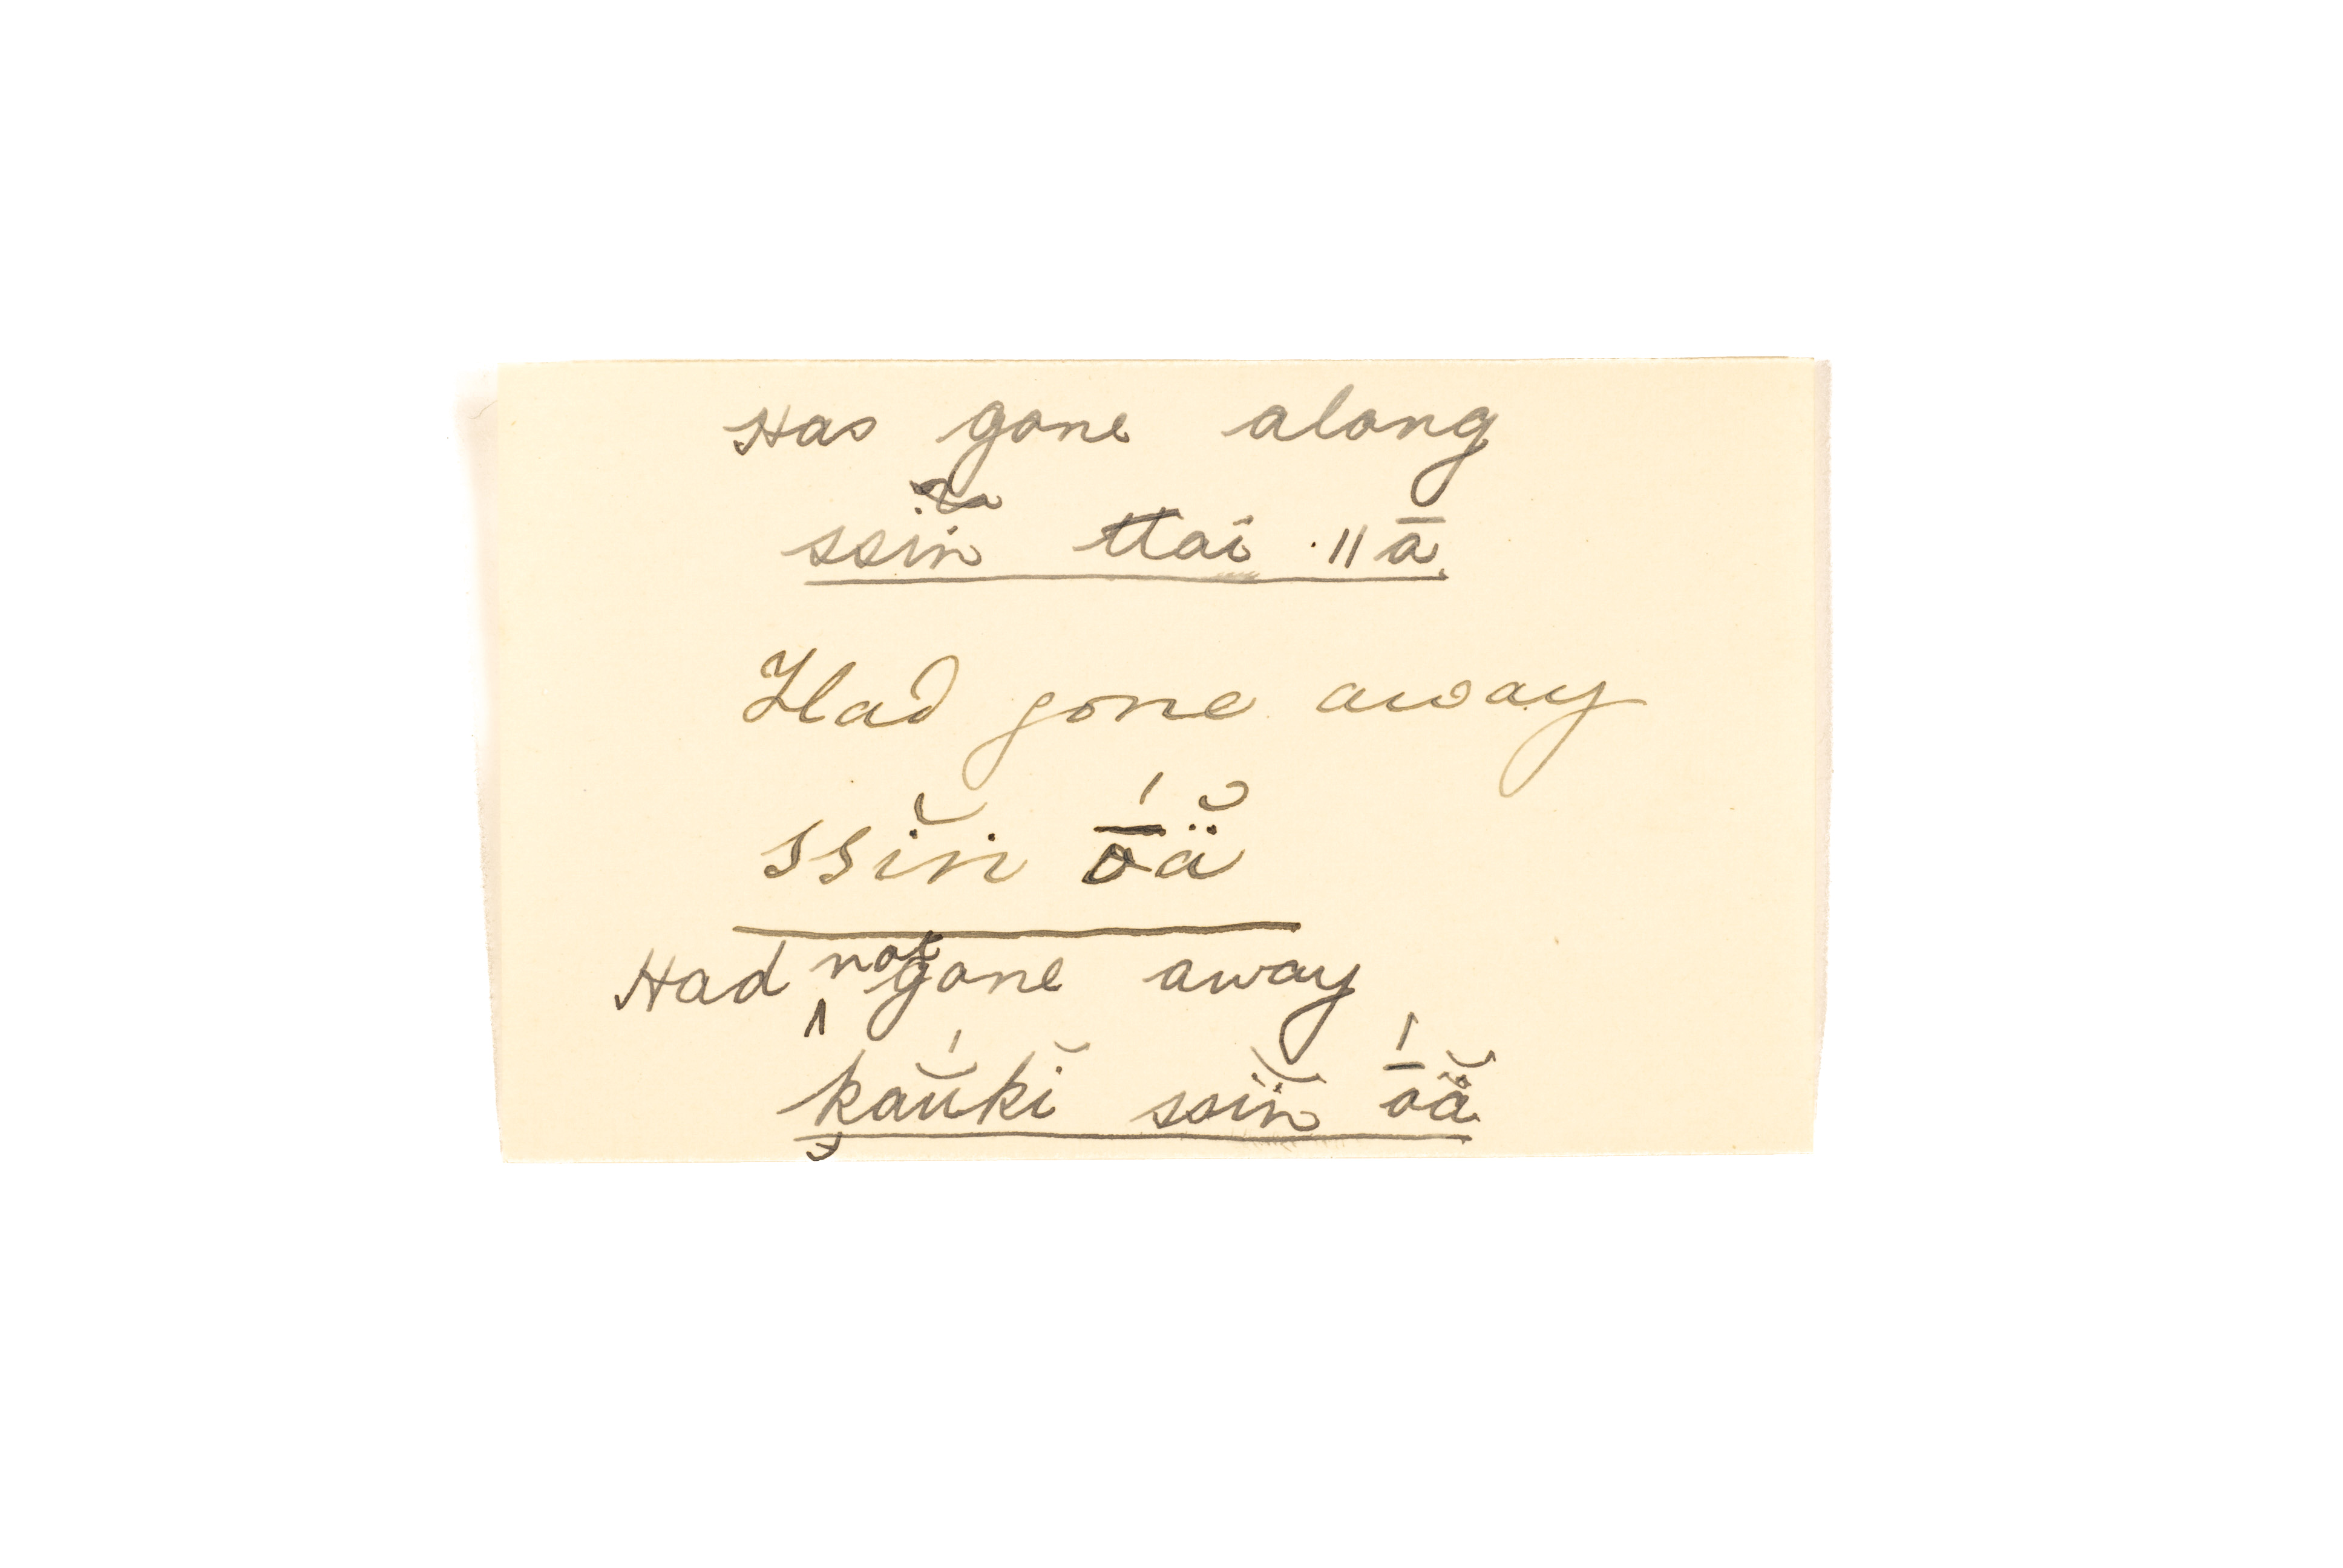 Has gone along
ssïn ttai ·llā
Had gone away
ssĭn ṓä̆
Had not gone away
kaŭ́kĭ ssĭn ṓä̆